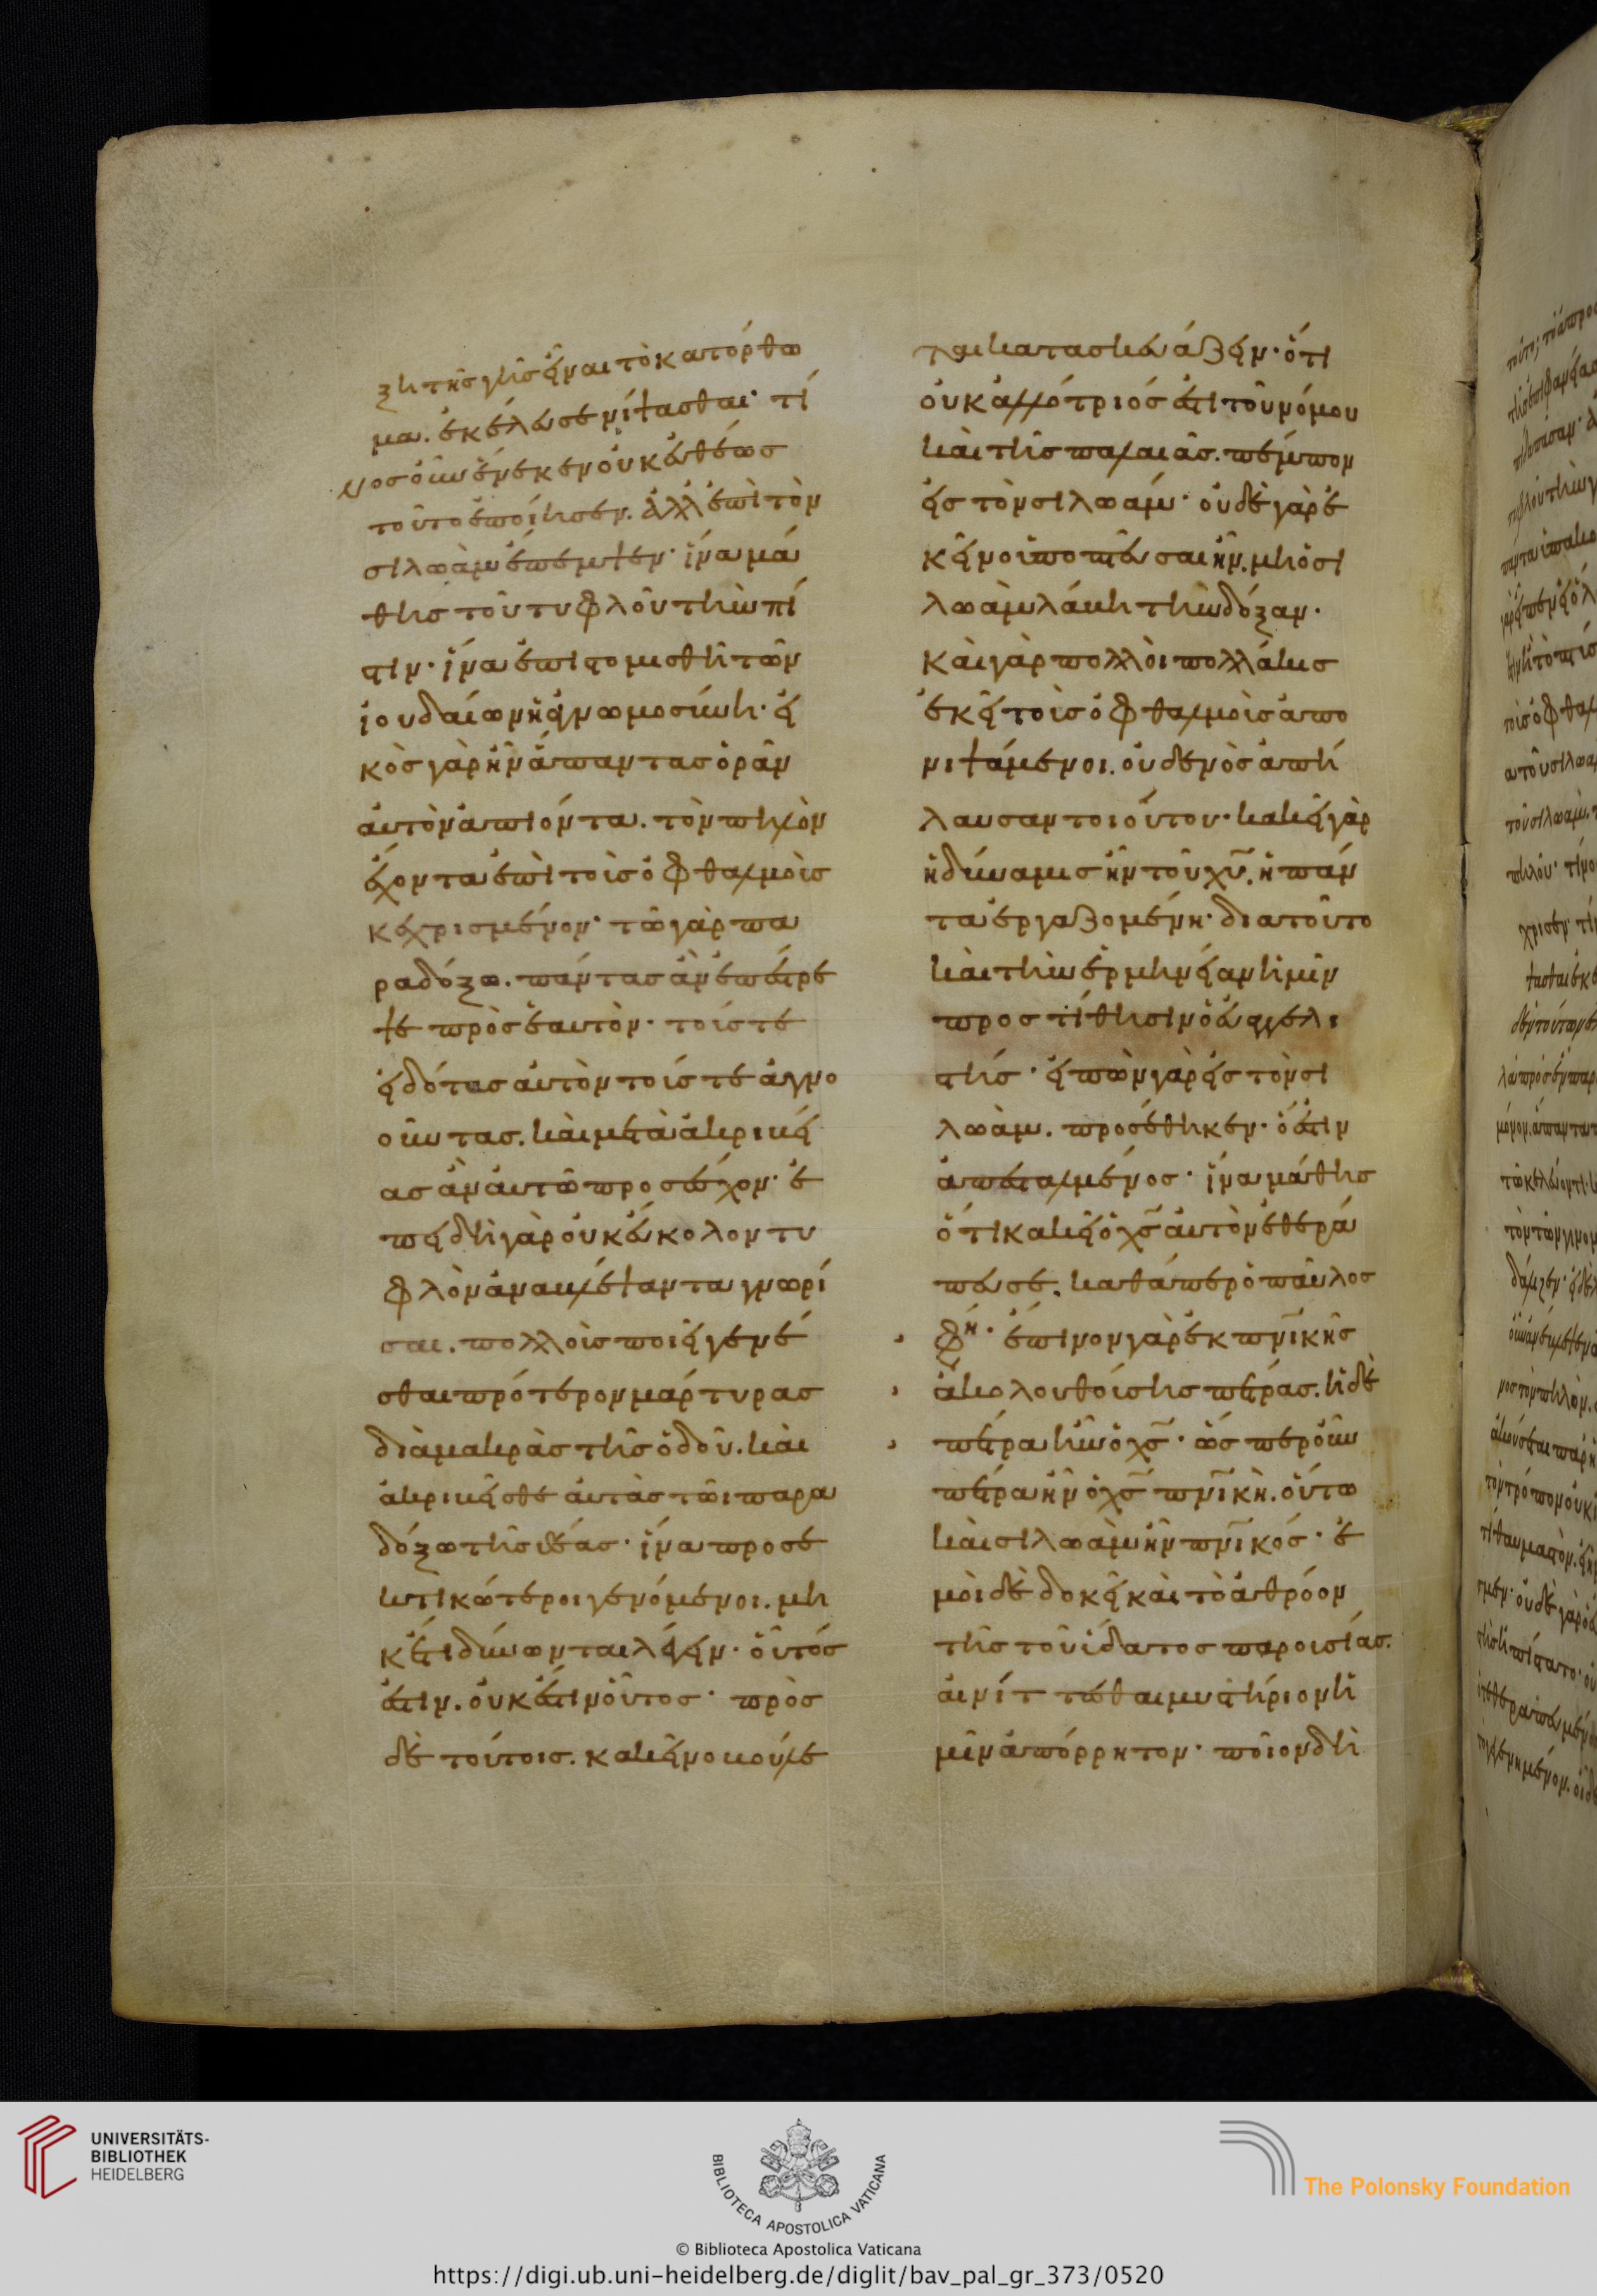 ξη τῆς γῆς εἶναι τὸ κατόρθω
μα. ἐκέλευσε νίψασθαι· τί
νος οὖν ἕνεκεν οὐκ εὐθέως
τοῦτο ἐποίησεν. ἀλλ ἐπὶ τὸν
σιλωὰμ ἔπεμψεν· ἵνα μά
θης τοῦ τυφλοῦ τὴν πί
στιν· ἵνα ἐπιστομισθῆ τῶν
ἰουδαίων ἡ ἀγνωμοσύνη· εἰ
κὸς γὰρ ἦν ἅπαντας ὁρᾶν
αὐτὸν ἀπιόντα. τὸν πηλὸν
ἔχοντα ἐπὶ τοῖς ὀφθαλμοῖς
κεχρισμένον· τῶ γὰρ πα
ραδόξω. πάντας ἂν ἐπέστρε
ψε πρὸς ἑαυτὸν· τούς τε
εἰδότας αὐτὸν τούς τε ἀγνο
οῦντας. καὶ μετὰ ἀκριβεί
ας ἂν αὐτῶ προσεῖχον· ἐ
πειδὴ γὰρ οὐκ εὔκολον τυ
φλὸν ἀναβλέψαντα γνωρί
σαι. πολλοὺς ποιεῖ γενέ
σθαι πρότερον μάρτυρας
διὰ μακρᾶς τῆς ὁδοῦ. καὶ
ἀκριβεῖς θεατὰς τῶι παρα
δόξω τῆς θέας· ἵνα προσε
κτικώτεροι γενόμενοι. μη
κέτι δύνωνται λέγειν· οὗτός
ἐστιν. οὐκ ἔστιν οὗτος· πρὸς
δὲ τούτοις. κακεῖνο βούλε
ται κατασκευάζειν· ὅτι
οὐκ ἀλλότριός ἐστι τοῦ νόμου
καὶ τῆς παλαιᾶς. πέμπον
εἰς τὸν σιλωάμ· οὐδὲ γὰρ ἐ
κεῖνο ὑποπτεῦσαι ἦν. μὴ ὁ σι
λωὰμ λάβη τὴν δόξαν·
καὶ γὰρ πολλοὶ πολλάκις
ἐκεῖ τοὺς ὀφθαλμοὺς ἀπο
νιψάμενοι. οὐδενὸς ἀπή
λαυσαν τοιούτου· κακεῖ γὰρ
ἡ δύναμις ἦν τοῦ χῦ. ἡ πάν
τα ἐργαζομένη· διατοῦτο
καὶ τὴν ἑρμηνείαν ἡμῖν
προστίθησιν ὁ εὐαγγελι
στής· εἰπὼν γὰρ εἰς τὸν σι
λωὰμ. προσέθηκεν· ὅ ἐστιν
ἀπεσταλμένος· ἵνα μάθης
ὅτι κακεῖ ὁ χς αὐτὸν ἐθερά
πευσε. καθάπερ ὁ παῦλος
φη· ἔπινον γὰρ ἐκ πνικῆς
ἀκολουθούσης πέτρας. ἡ δὲ
πέτρα ἦν ὁ χς· ὥσπερ οὖν
πέτρα ἦν ὁ χς πνικὴ. οὕτω
καὶ σιλωὰμ ἦν πνικός· ἐ
μοὶ δὲ δοκεῖ καὶ τὸ ἀθρόον
τῆς τοῦ ὕδατος παρουσίας.
αἰνίττεσθαι μυστήριον ἡ
μῖν ἀπόρρητον· ποῖον δὴ
UNIVERSITÄTS-
BIBLIOTHEK
HEIDELBERG
BIBLIOTECA APOSTOLICA VATICANA
The Polonsky Foundation
© Biblioteca Apostolica Vaticana
https://digi.ub.uni-heidelberg.de/diglit/bav_pal_gr_373/0520